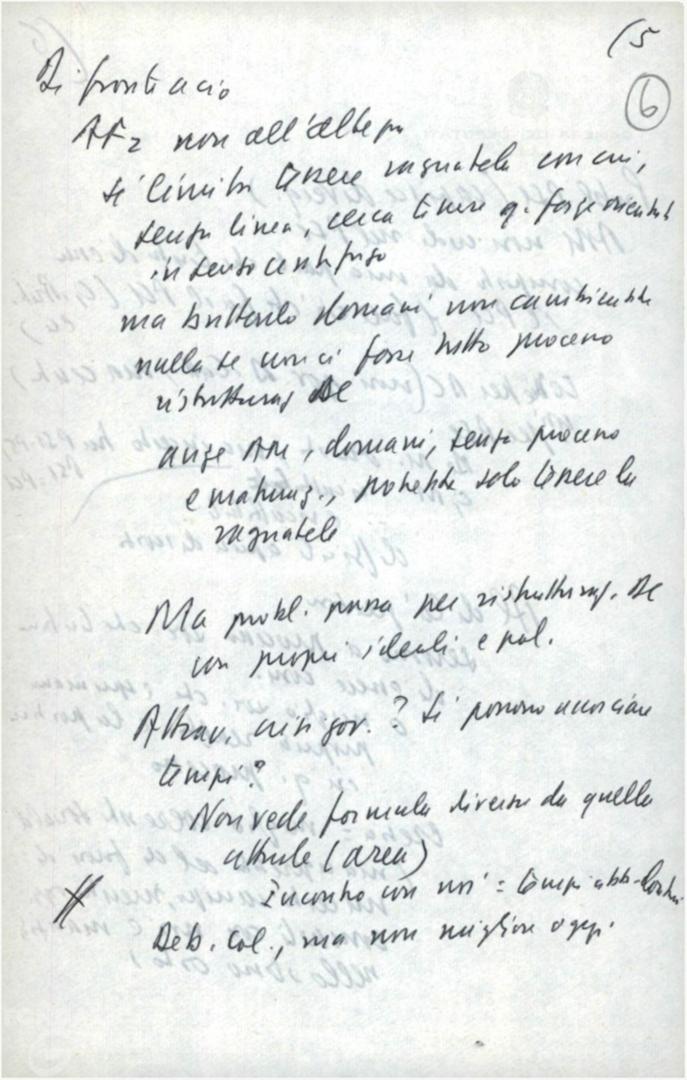 (5
6
Di fronte a ciò
AF2 non all'altezza
si limita tenere ragnatela con cui,
senza linea, cerca tenere q. forze orientate
in senso centrifugo
ma buttarlo domani non cambierebbe
nulla se non ci fosse tutto processo
ristrutturaz DC
anzi AM, domani, senza processo
e maturaz., potrebbe solo tenere la
ragnatela
Ma probl. passa per ristrutturaz. DC
con propri ideali e pol.
Attrav. crisi gov.? Si possono accorciare
tempi?
Non vede formula diversa da quella
attuale (area)
Incontro con noi = tempi abb. lontani
Deb. Col., ma non migliore oggi.